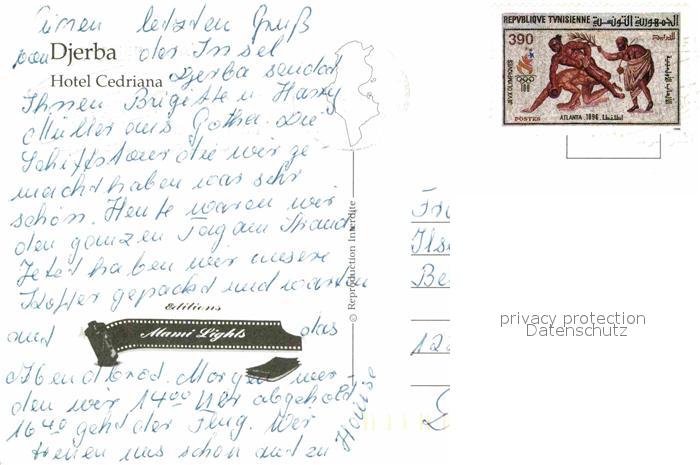 Einen letzten Gruß
von der Insel
Djerba
Hotel Cedriana
Djerba sendet
Ihnen Brigitte u Harry
Müller aus Gotha. Die
Schiffstour die wir ge-
macht haben war sehr
schön. Heute waren wir
den ganzen Tag am Strand
Jetzt haben wir unsere
Koffer gepackt und warten
auf das
Abendbrod. Morgen wer-
den wir 14⁰⁰ Uhr abgeholt
16⁴⁰ geht der Flug. Wir
freuen uns schon auf zu
Hause
Editions
Mami Lights
© Reproduction Interdite
REPVBLIQVE TVNISIENNE الجمهورية التونسية
390
JEVX OLIMPIQVES
100
POSTES
ATLANTA 1996
Fr
Ilse
Be
12
privacy protection
Datenschutz